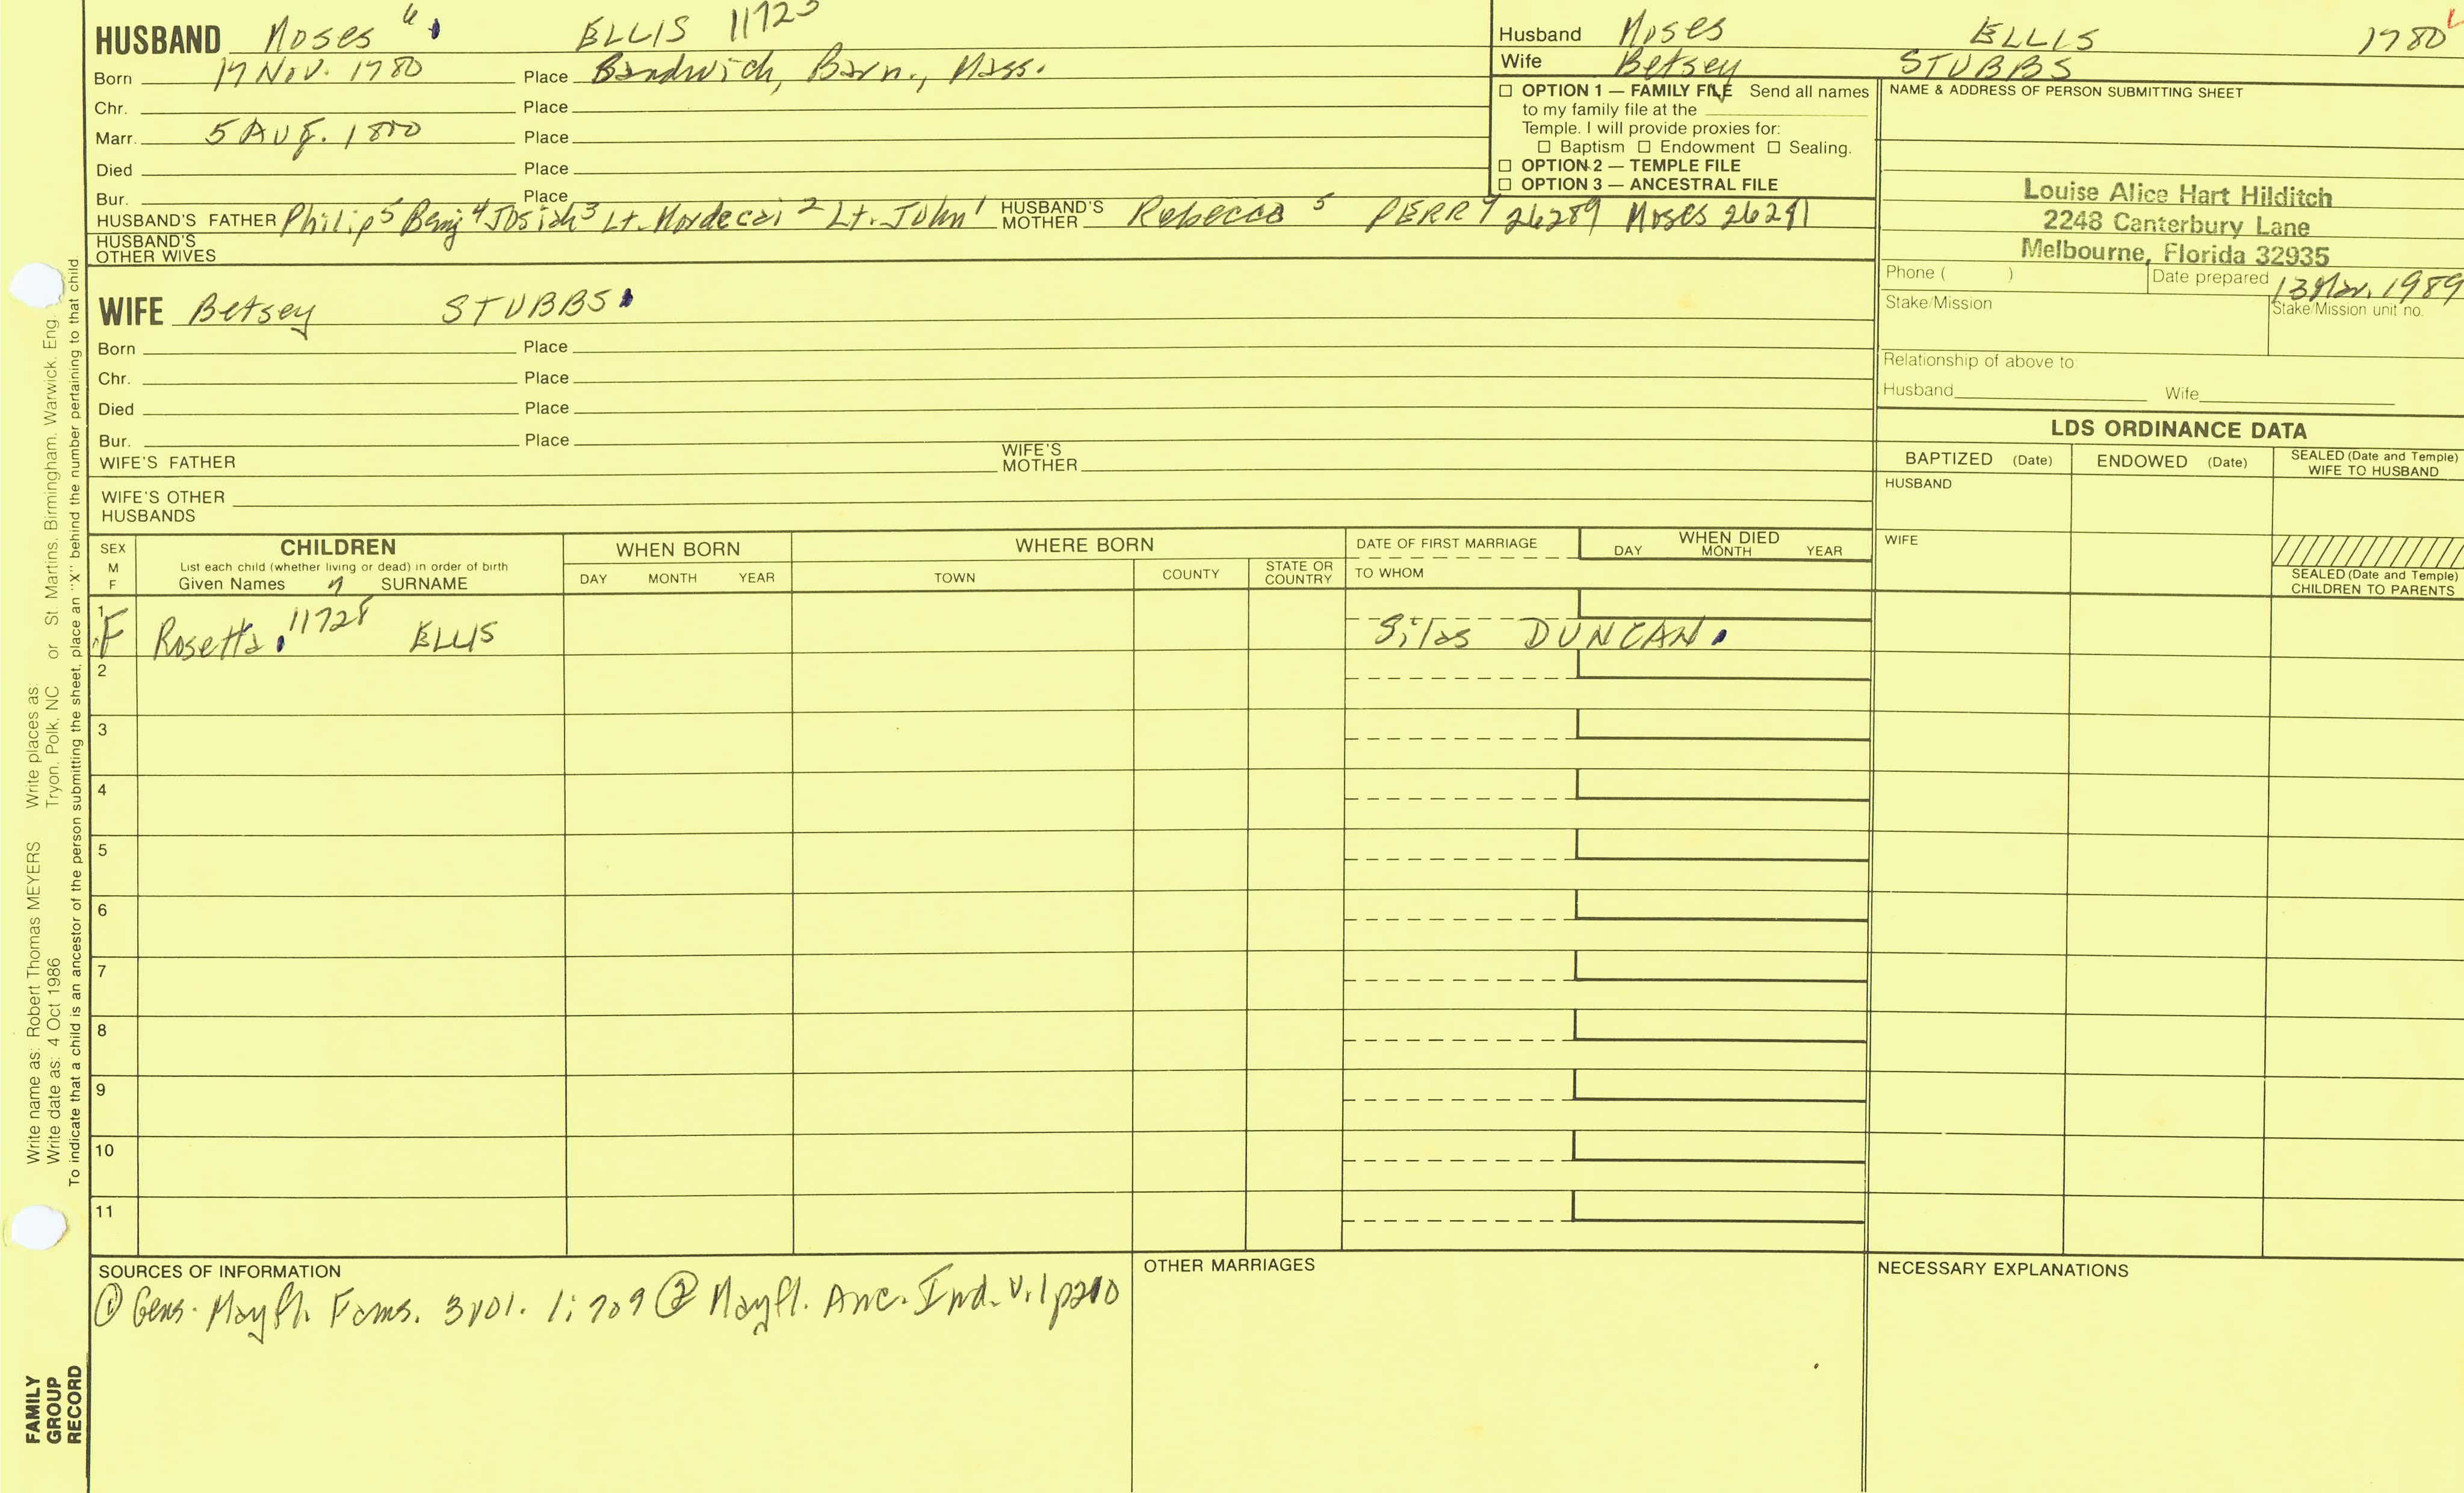 HUSBAND Moses 6 ELLIS 11723
Born 17 Nov. 1780 Place Sandwich, Barn., Mass.
Chr. Place
Marr. 5 Aug. 1800 Place
Died Place
Bur. Place
HUSBAND'S FATHER Philip5 Benj4 Josiah3 Lt. Mordecai2 Lt. John1 HUSBAND'S MOTHER Rebecca5 PERRY 26289 Moses 26291
HUSBAND'S OTHER WIVES
Husband Moses ELLIS 1780
Wife Betsey STUBBS
☐ OPTION 1 — FAMILY FILE Send all names
to my family file at the
Temple. I will provide proxies for:
☐ Baptism ☐ Endowment ☐ Sealing.
☐ OPTION 2 — TEMPLE FILE
☐ OPTION 3 — ANCESTRAL FILE
NAME & ADDRESS OF PERSON SUBMITTING SHEET
Louise Alice Hart Hilditch
2248 Canterbury Lane
Melbourne, Florida 32935
Phone ( ) Date prepared 13 Mar. 1989
Stake/Mission Stake/Mission unit no.
Relationship of above to:
Husband Wife
WIFE Betsey STUBBS
Born Place
Chr. Place
Died Place
Bur. Place
WIFE'S FATHER WIFE'S MOTHER
WIFE'S OTHER HUSBANDS
LDS ORDINANCE DATA
BAPTIZED (Date) ENDOWED (Date) SEALED (Date and Temple) WIFE TO HUSBAND
HUSBAND
WIFE
SEALED (Date and Temple) CHILDREN TO PARENTS
SEX M F
CHILDREN
List each child (whether living or dead) in order of birth
Given Names 7 SURNAME
WHEN BORN
DAY MONTH YEAR
WHERE BORN
TOWN COUNTY STATE OR COUNTRY
DATE OF FIRST MARRIAGE
TO WHOM
WHEN DIED
DAY MONTH YEAR
1 F Rosetta 11728 ELLIS Silas DUNCAN
2
3
4
5
6
7
8
9
10
11
SOURCES OF INFORMATION
① Gens. Mayfl. Fams. 3 vol. 1:709 ② Mayfl. Anc. Ind. V.1 p210
OTHER MARRIAGES
NECESSARY EXPLANATIONS
Write name as: Robert Thomas MEYERS Write places as:
Write date as: 4 Oct 1986 Tryon, Polk, NC or St. Martins, Birmingham, Warwick, Eng.
To indicate that a child is an ancestor of the person submitting the sheet, place an "X" behind the number pertaining to that child.
FAMILY
GROUP
RECORD